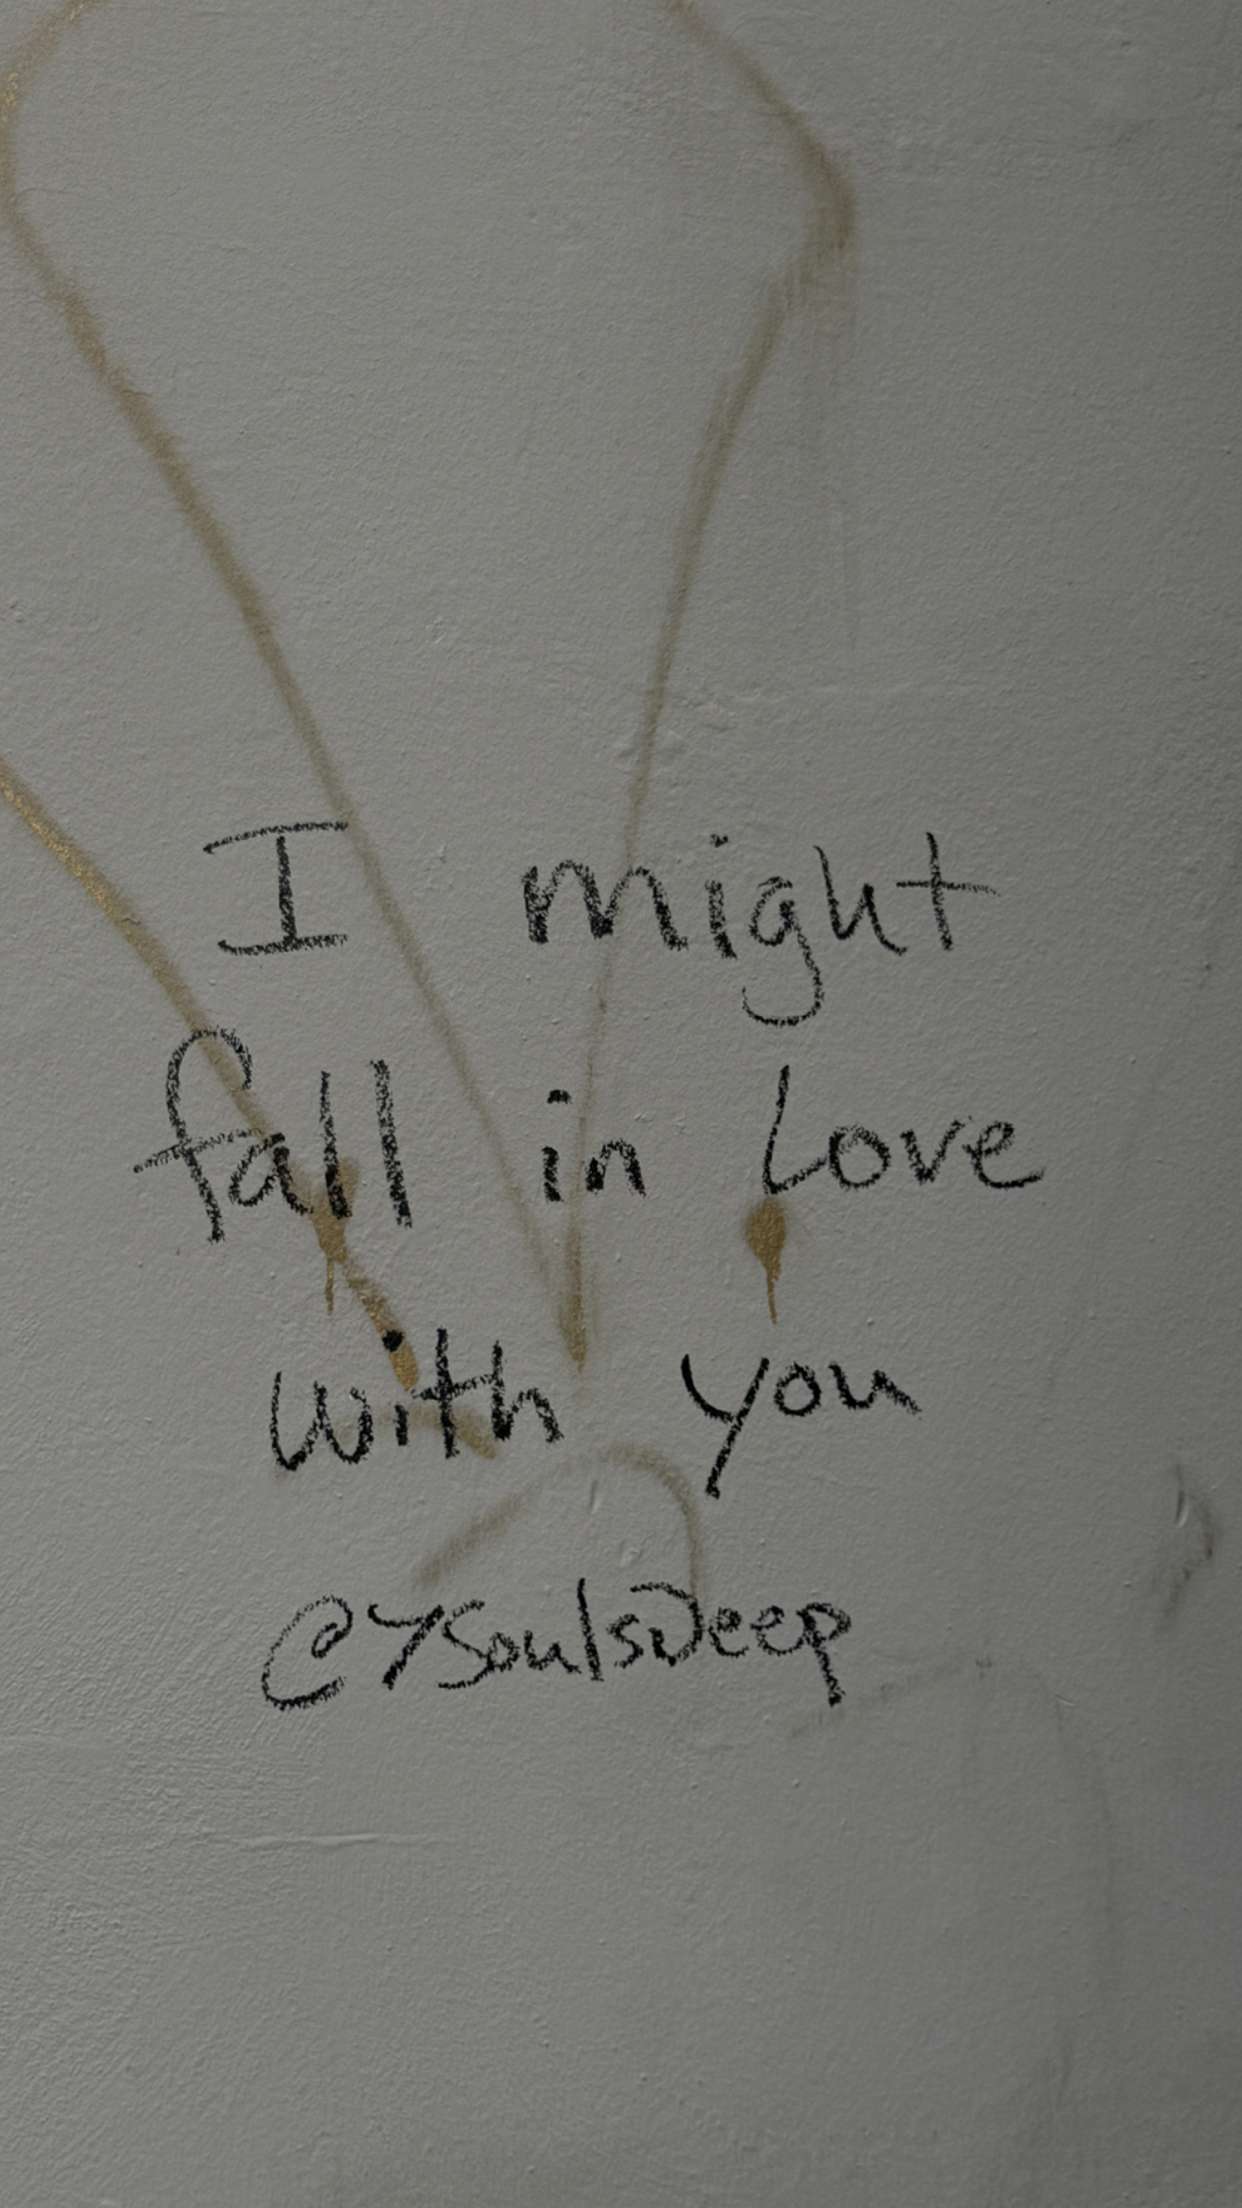 I might
fall in love
with you
@7soulsDeep